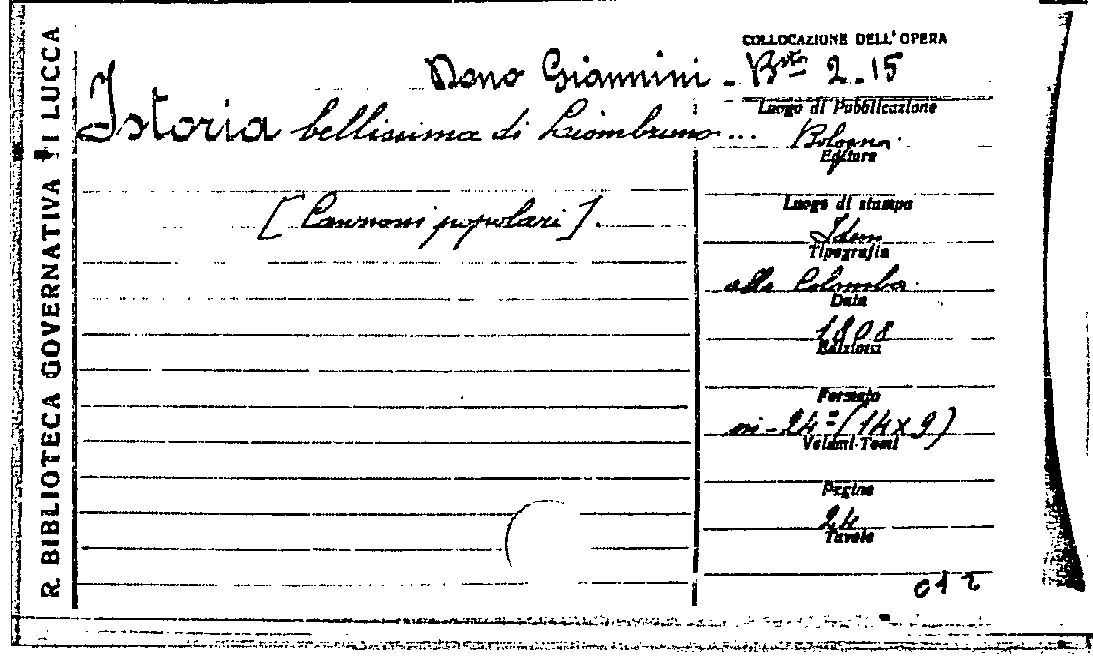 R. BIBLIOTECA GOVERNATIVA DI LUCCA
COLLOCAZIONE DELL'OPERA
Dono Giannini - Bta 2-15
Istoria bellissima di Liombruno...
[Canzoni popolari].
Luogo di Pubblicazione
Bologna.
Editore
Luogo di stampa
Idem
Tipografia
alla Colomba.
Data
1808
Edizioni
Formato
in-24º (14x9)
Volumi-Tomi
Pagine
24
Tavole